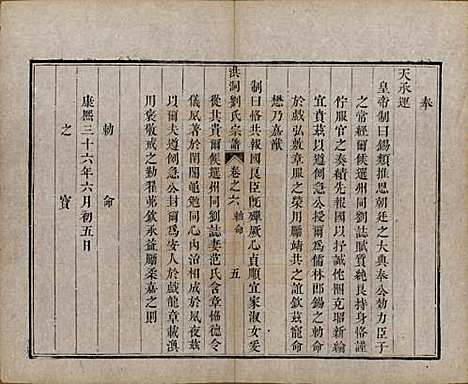 奉
天承運
皇帝制曰錫類推恩朝廷之大典奉公効力臣子
之常經爾候選州同劉誌賦質純良持身恪謹
竹服官之奏積先報國以抒誠佗團克昭新綸
宜賁茲以爾急公授爾為儒林郎錫之勅命
於戲弘敷章服之榮用勵靖共之誼欽茲寵命
懋乃嘉猷
制曰恪共報國良臣旣殫厥心貞順宜家淑女爰
從其貴爾候選州同劉誌妻范氏含章協德令
儀夙著於閨閫黽勉同心內治相成於夙夜茲
以爾夫道例急公封爾為安人於戲龍章載渙
用褒敬戒之勤翟茀欽承益勵柔嘉之則
勅命
康熙三十六年六月初五日
之寶
洪洞劉氏宗譜 卷之六 勅命 五